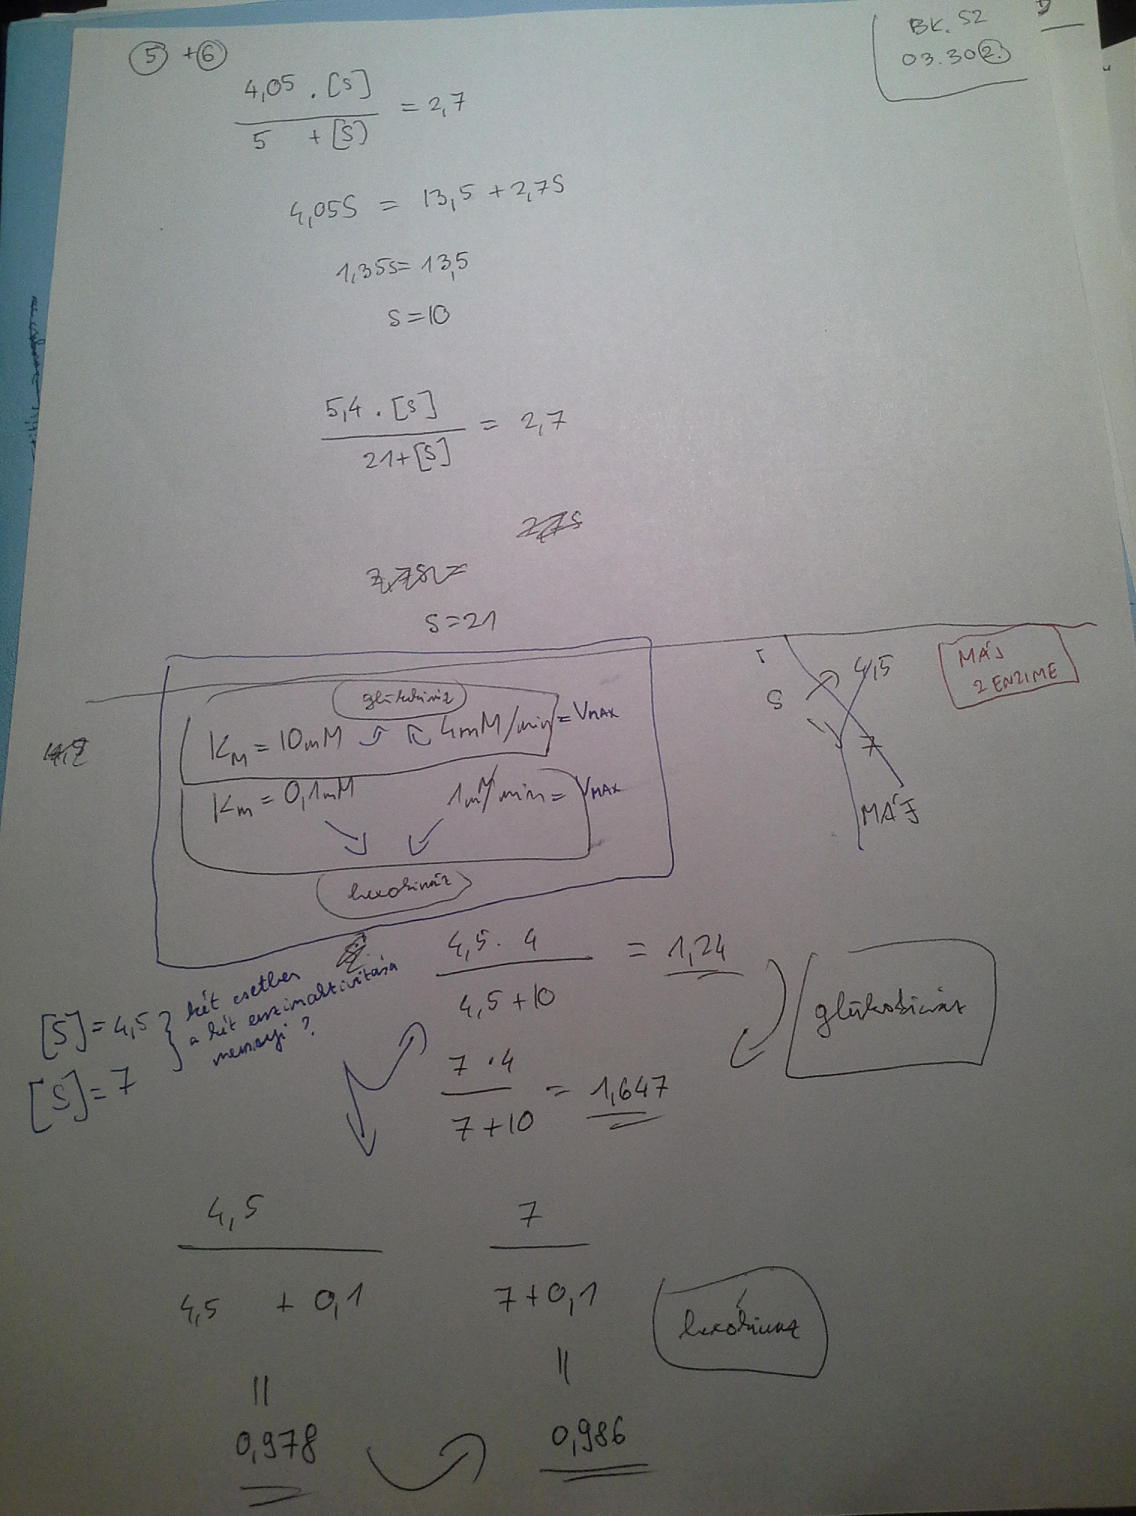 BK. S2
03.30 2.
5 + 6
4,05 . [S]
5 + [S]
= 2,7
4,05S = 13,5 + 2,7S
1,35S = 13,5
S = 10
5,4 . [S]
21 + [S]
= 2,7
S = 21
MÁJ
2 ENZIME
5
4,5
7
MÁJ
glükokináz
KM = 10 mM
4mM/min = VMAX
Km = 0,1mM
1mM/min = VMAX
hexokináz
[S] = 4,5
[S] = 7
két esetben
a két enzimaktivitása
mennyi?
4,5 . 4
4,5 + 10
= 1,24
7 . 4
7 + 10
= 1,647
glükokináz
4,5
4,5 + 0,1
=
0,978
7
7 + 0,1
=
0,986
hexokináz